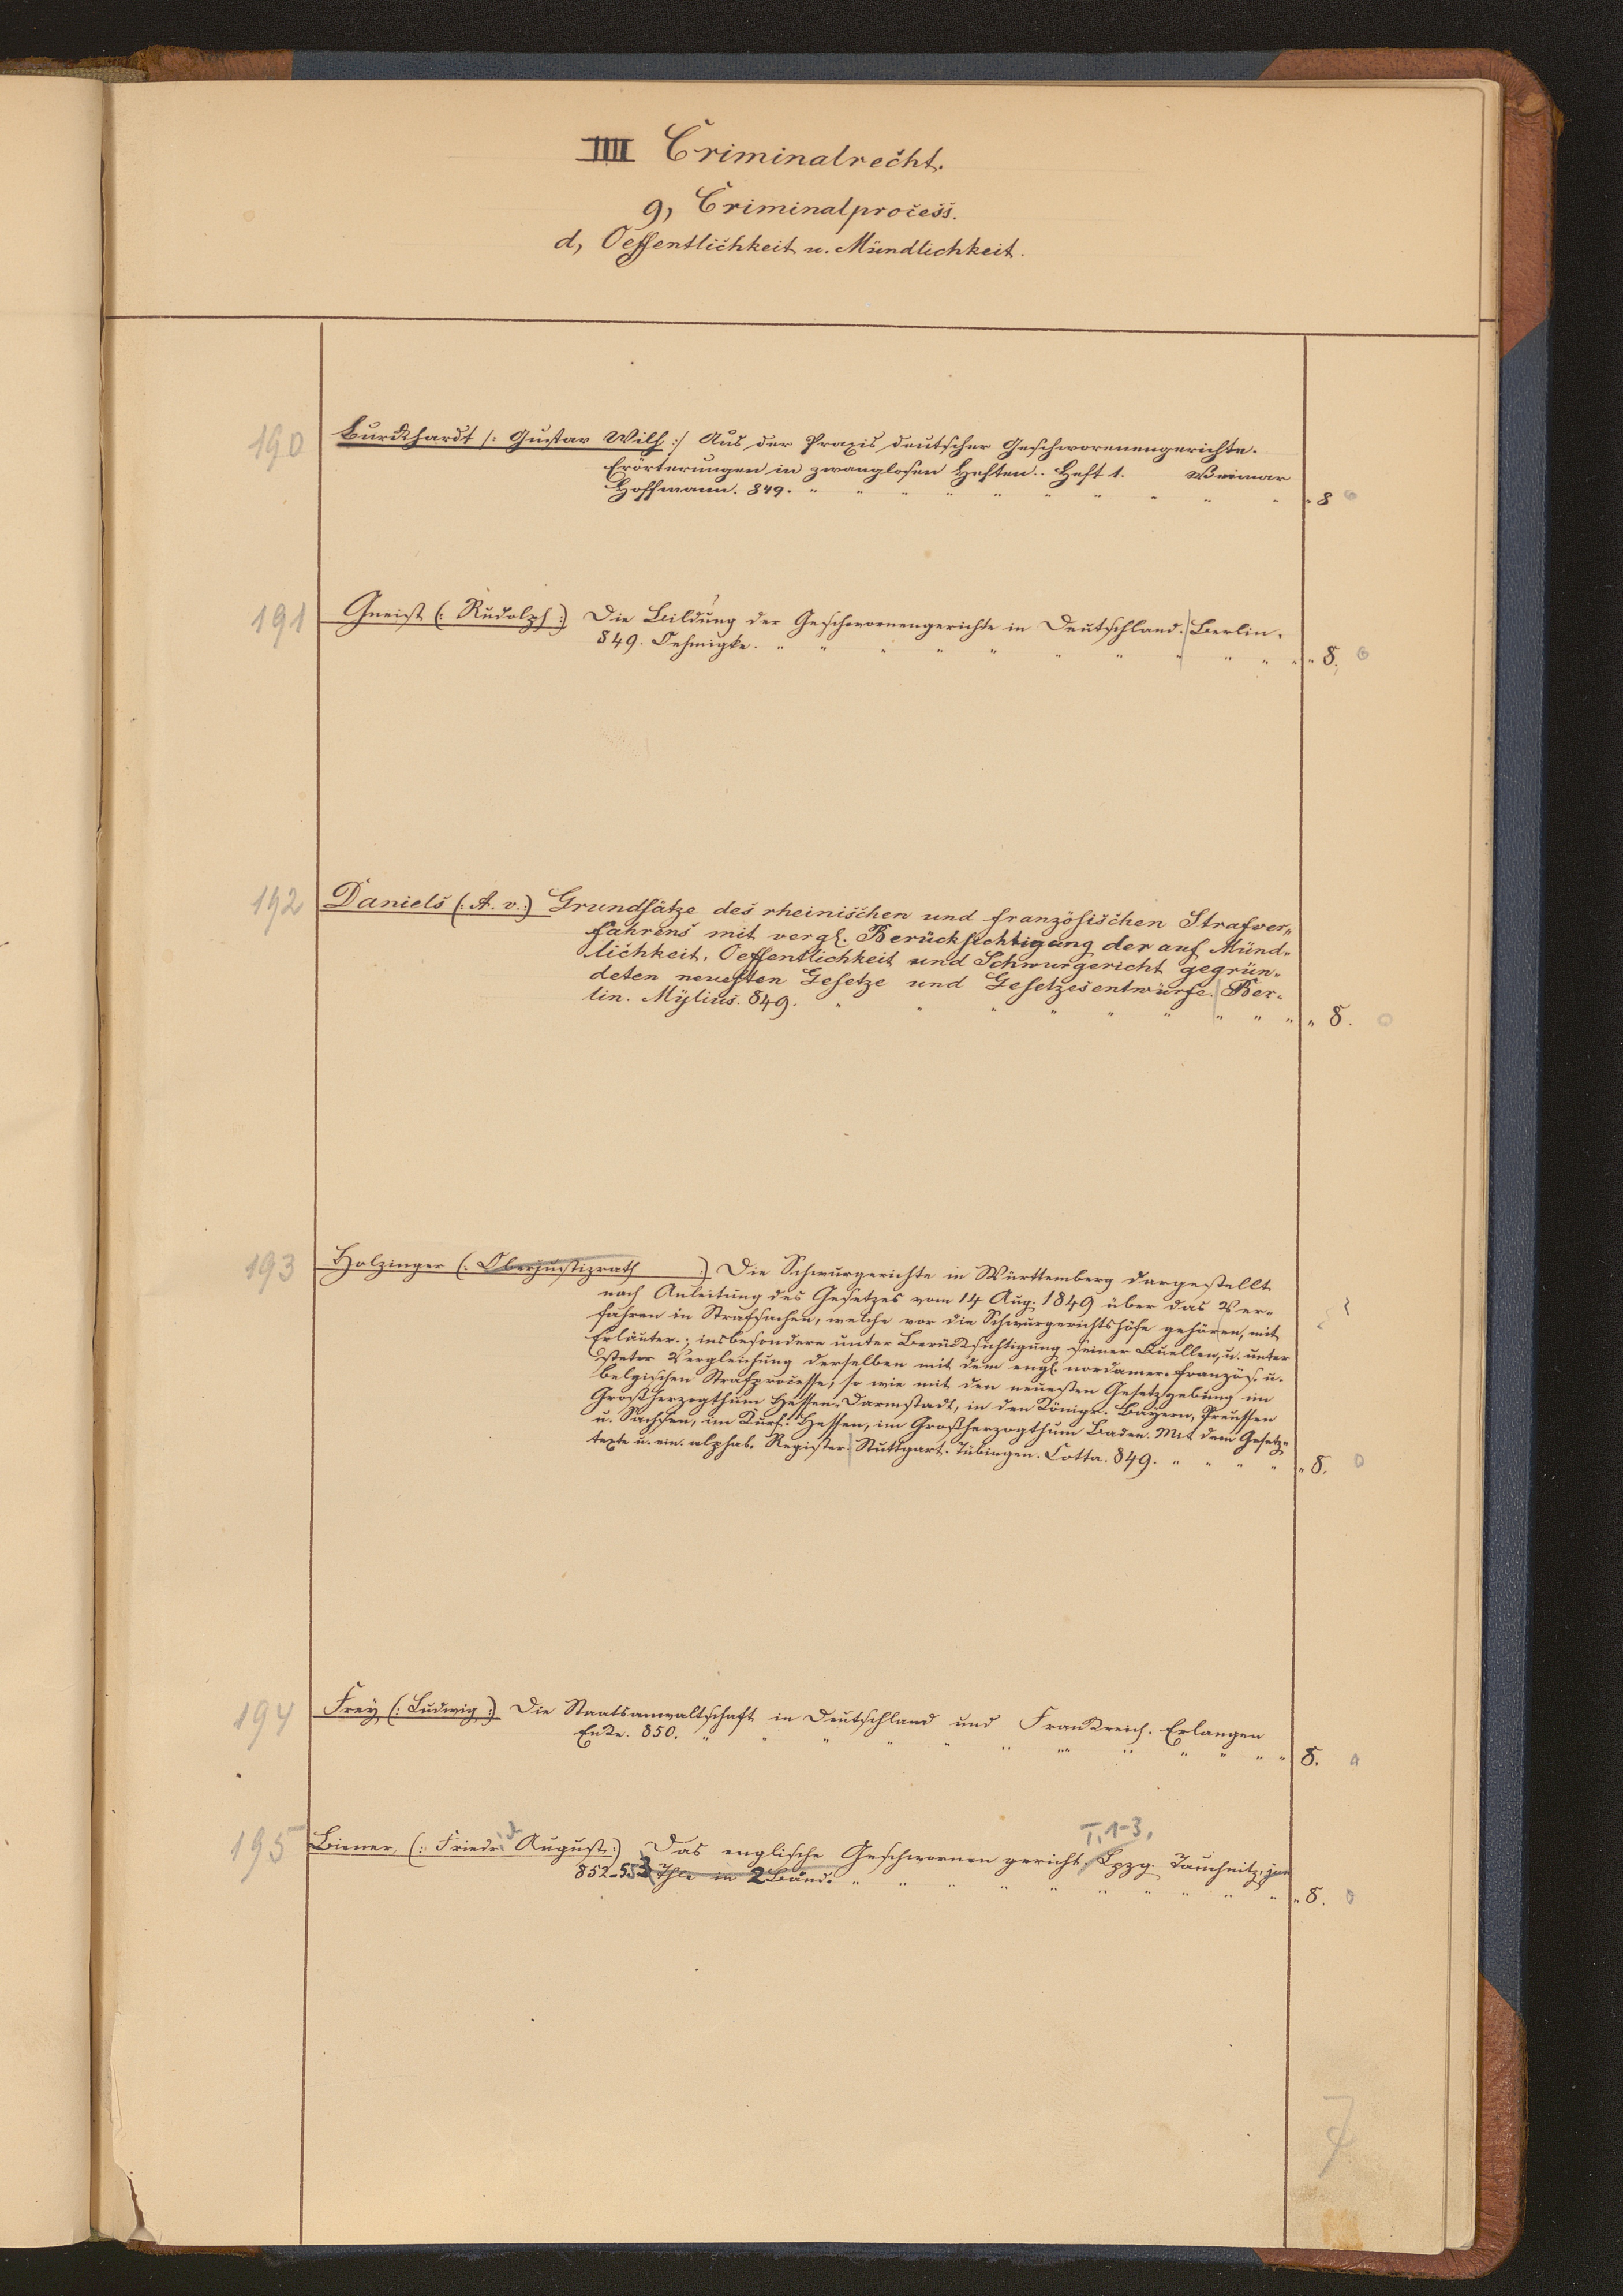 IIII Criminalrecht.
g, Criminalprocess.
d, Oeffentlichkeit u. Mündlichkeit.
190 Burckhardt /: Gustav Wilh :/ Aus der Praxis deutscher Geschworenengerichte.
Erörterungen in zwanglosen Heften.. Heft 1. Weimar
Hoffmann. 849. " " " " " " " " " " " 8
191 Gneist (: Rudolph :) Die Bildung der Geschwornengerichte in Deutschland. Berlin.
849. Oehmigke. " " " " " " " " " " " " 8.
192 Daniels (: A. v. :) Grundsätze des rheinischen und französischen Strafver„
fahrens mit vergl. Berücksichtigung der auf Münd„
lichkeit, Oeffentlichkeit und Schwurgericht gegrün„
deten neuesten Gesetze und Gesetzesentwürfe. Ber„
lin. Mylius. 849. " " " " " " " " " " 8.
193 Holzinger (: Oberjustizrath :) Die Schwurgerichte in Württemberg dargestellt
nach Anleitung des Gesetzes vom 14 Aug. 1849 über das Ver„
fahren in Strafsachen, welche vor die Schwurgerichtshöfe gehören, mit
Erläuter., insbesondere unter Berücksichtigung seiner Quellen, u. unter
steter Vergleichung derselben mit dem engl. nordamer. französ. u.
belgischen Strafprocesse, so wie mit den neuesten Gesetzgebung im
Großherzogthum Hessen-Darmstadt, in den Königr. Bayern, Preussen
u. Sachsen, im Kurf. Hessen, im Großherzogthum Baden. Mit dem Gesetz„
texte u. ein. alphab. Register. Stuttgart. Tübingen. Cotta. 849. " " " " " 8.
194 Frey (: Ludwig :) Die Staatsanwaltschaft in Deutschland und Frankreich. Erlangen
Enke. 850. " " " " " " " " " " " 8.
T. 1-3,
195 Biener, (: Friedr. August :) Das englische Geschwornen gericht. Lpzg. Tauchnitz, jun
852-55 3 Thle in 2 Bänd. " " " " " " " " " " " 8.
7